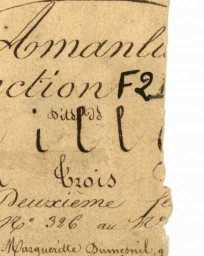 Amanl
ction F2
ill
Trois
Deuxième
N° 326 au N°
Marguerille Dumesnil,